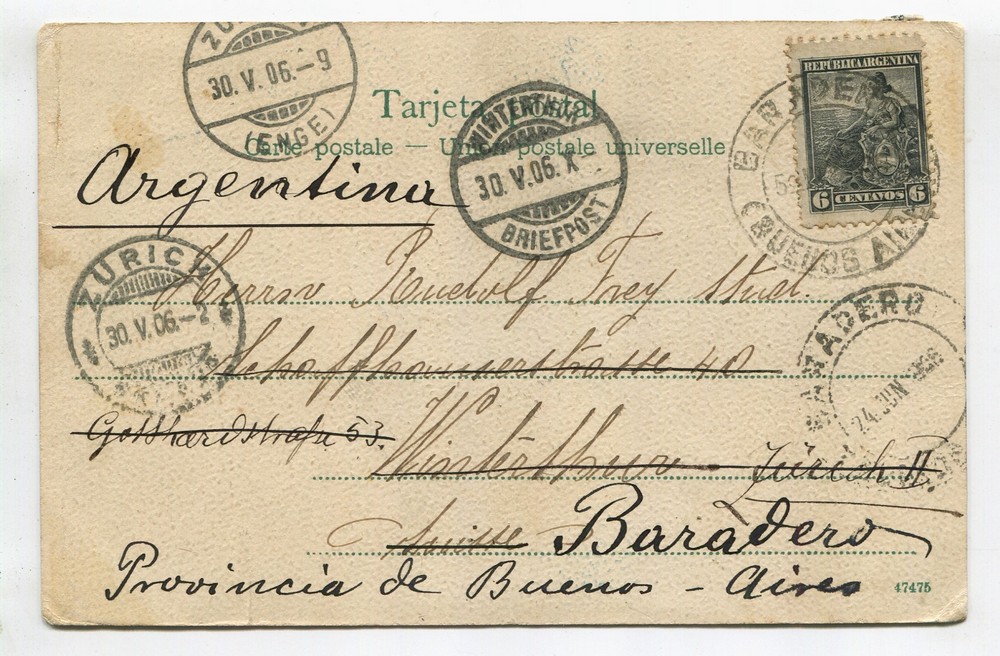 30. V. 06.-9
(ENGE)
Tarjeta Postal
Carte postale — Union postale universelle
WINTERTHUR
30. V. 06. X-
BRIEFPOST
REPUBLICA ARGENTINA
6 CENTAVOS 6
(BUENOS AIRES
Argentina
ZÜRICH
30. V. 06.-2
Herrn Rudolf Frey stud.
Schaffhauserstrasse 40
BARADERO
24 JUN 1906
Gotthardstrasse 53.
Winterthur Zürich II
Suisse Baradero
Provincia de Buenos-Aires
47475